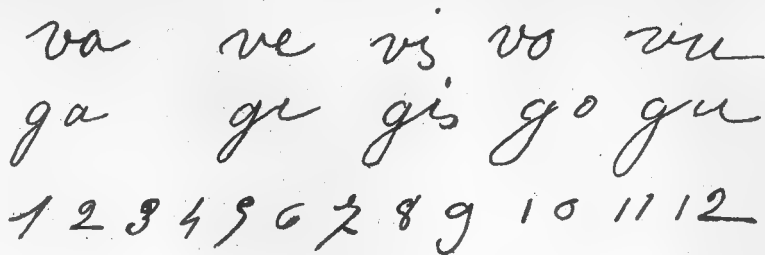 va ve vis vo vu
ga ge gis go gu
1 2 3 4 5 6 7 8 9 10 11 12